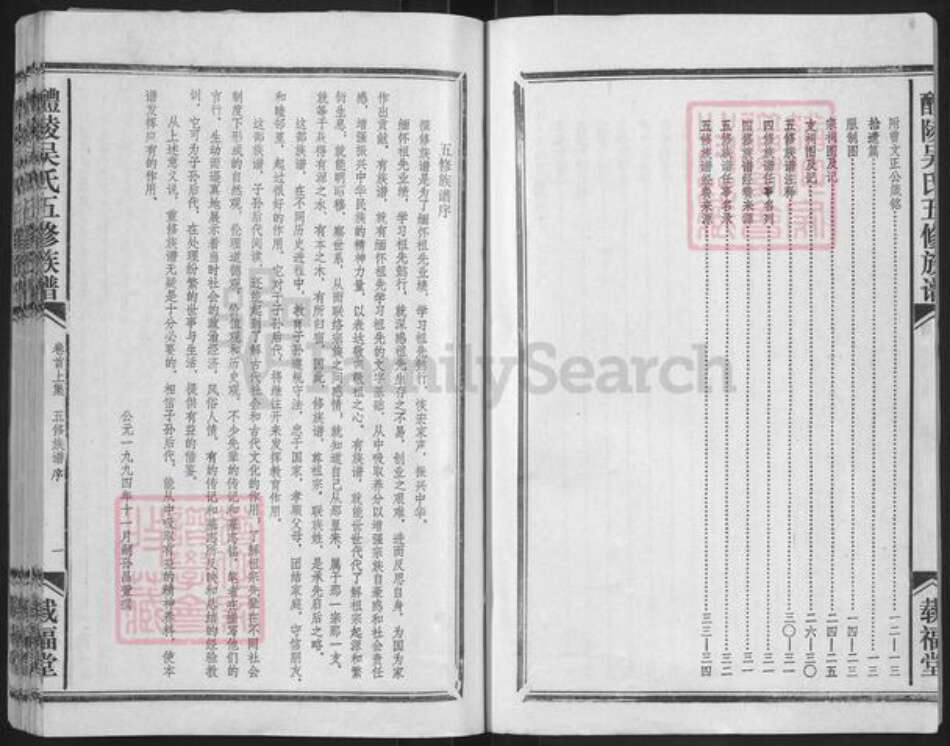 醴陵吴氏五修族谱
载福堂
附曹文正公箴铭 一二—一三
拾遗篇 一三
服制图 一四—二三
宗祠图及记 二四—二五
支祠图及记 二六—三〇
五修族谱注释 三〇—三一
四修族谱任事名列 三一
四修族谱经费来源 三一
五修族谱任事名录 三二
五修族谱经费来源 三三—三四
五修族谱序
撰修族谱是为了缅怀祖先业绩，学习祖先躬行，恢宏家声，振兴中华。
缅怀祖先业绩，学习祖先躬行，就深感祖先生存之不易，创业之艰难，进而反思自身，为国为家
作出贡献。有族谱，就有缅怀祖先学习祖先的文字基础，从中吸取养分以增强宗族自豪感和社会责任
感，增强振兴中华民族的精神力量，以表达敬宗敬祖之心。有族谱，就能世世代代了解祖宗起源和繁
衍生息，就能明昭穆，察世系，从而联络宗族之间感情，就知道自己从那里来，属于那一宗那一支，
就等于从得有源之水，有本之木，有所归宿。因此，修族谱，尊祖宗，联族姓，是承先启后之略。
这部族谱，在不同历史进程中，教育子孙遵规守法，忠于国家，孝顺父母，团结家庭，守信朋友，
和睦邻里，起过很好的作用。它对于子孙后代，将继往开来发挥教育作用。
这部族谱，子孙后代阅读，还能起到了解古代社会和古代文化的作用，了解祖先先辈在不同社会
制度下形成的自然观、伦理道德观、价值观和历史观。不少先辈的传记和墓志铭，集者在描写他们的
言行，生动而逼真地展示着当时社会的政治经济、风俗人情。有的传记和墓志所反映和总结的经验教
训，它可为子孙后代，在处理纷繁的世事与生活，提供有益的借鉴。
从上述意义说，重修族谱无疑是十分必要的。相信子孙后代，能从中吸取有益的精神养料，使本
谱发挥应有的作用。
公元一九九四年十一月嗣孙昌
醴陵吴氏五修族谱
卷首上集 五修族谱序
一
载福堂
FamilySearch